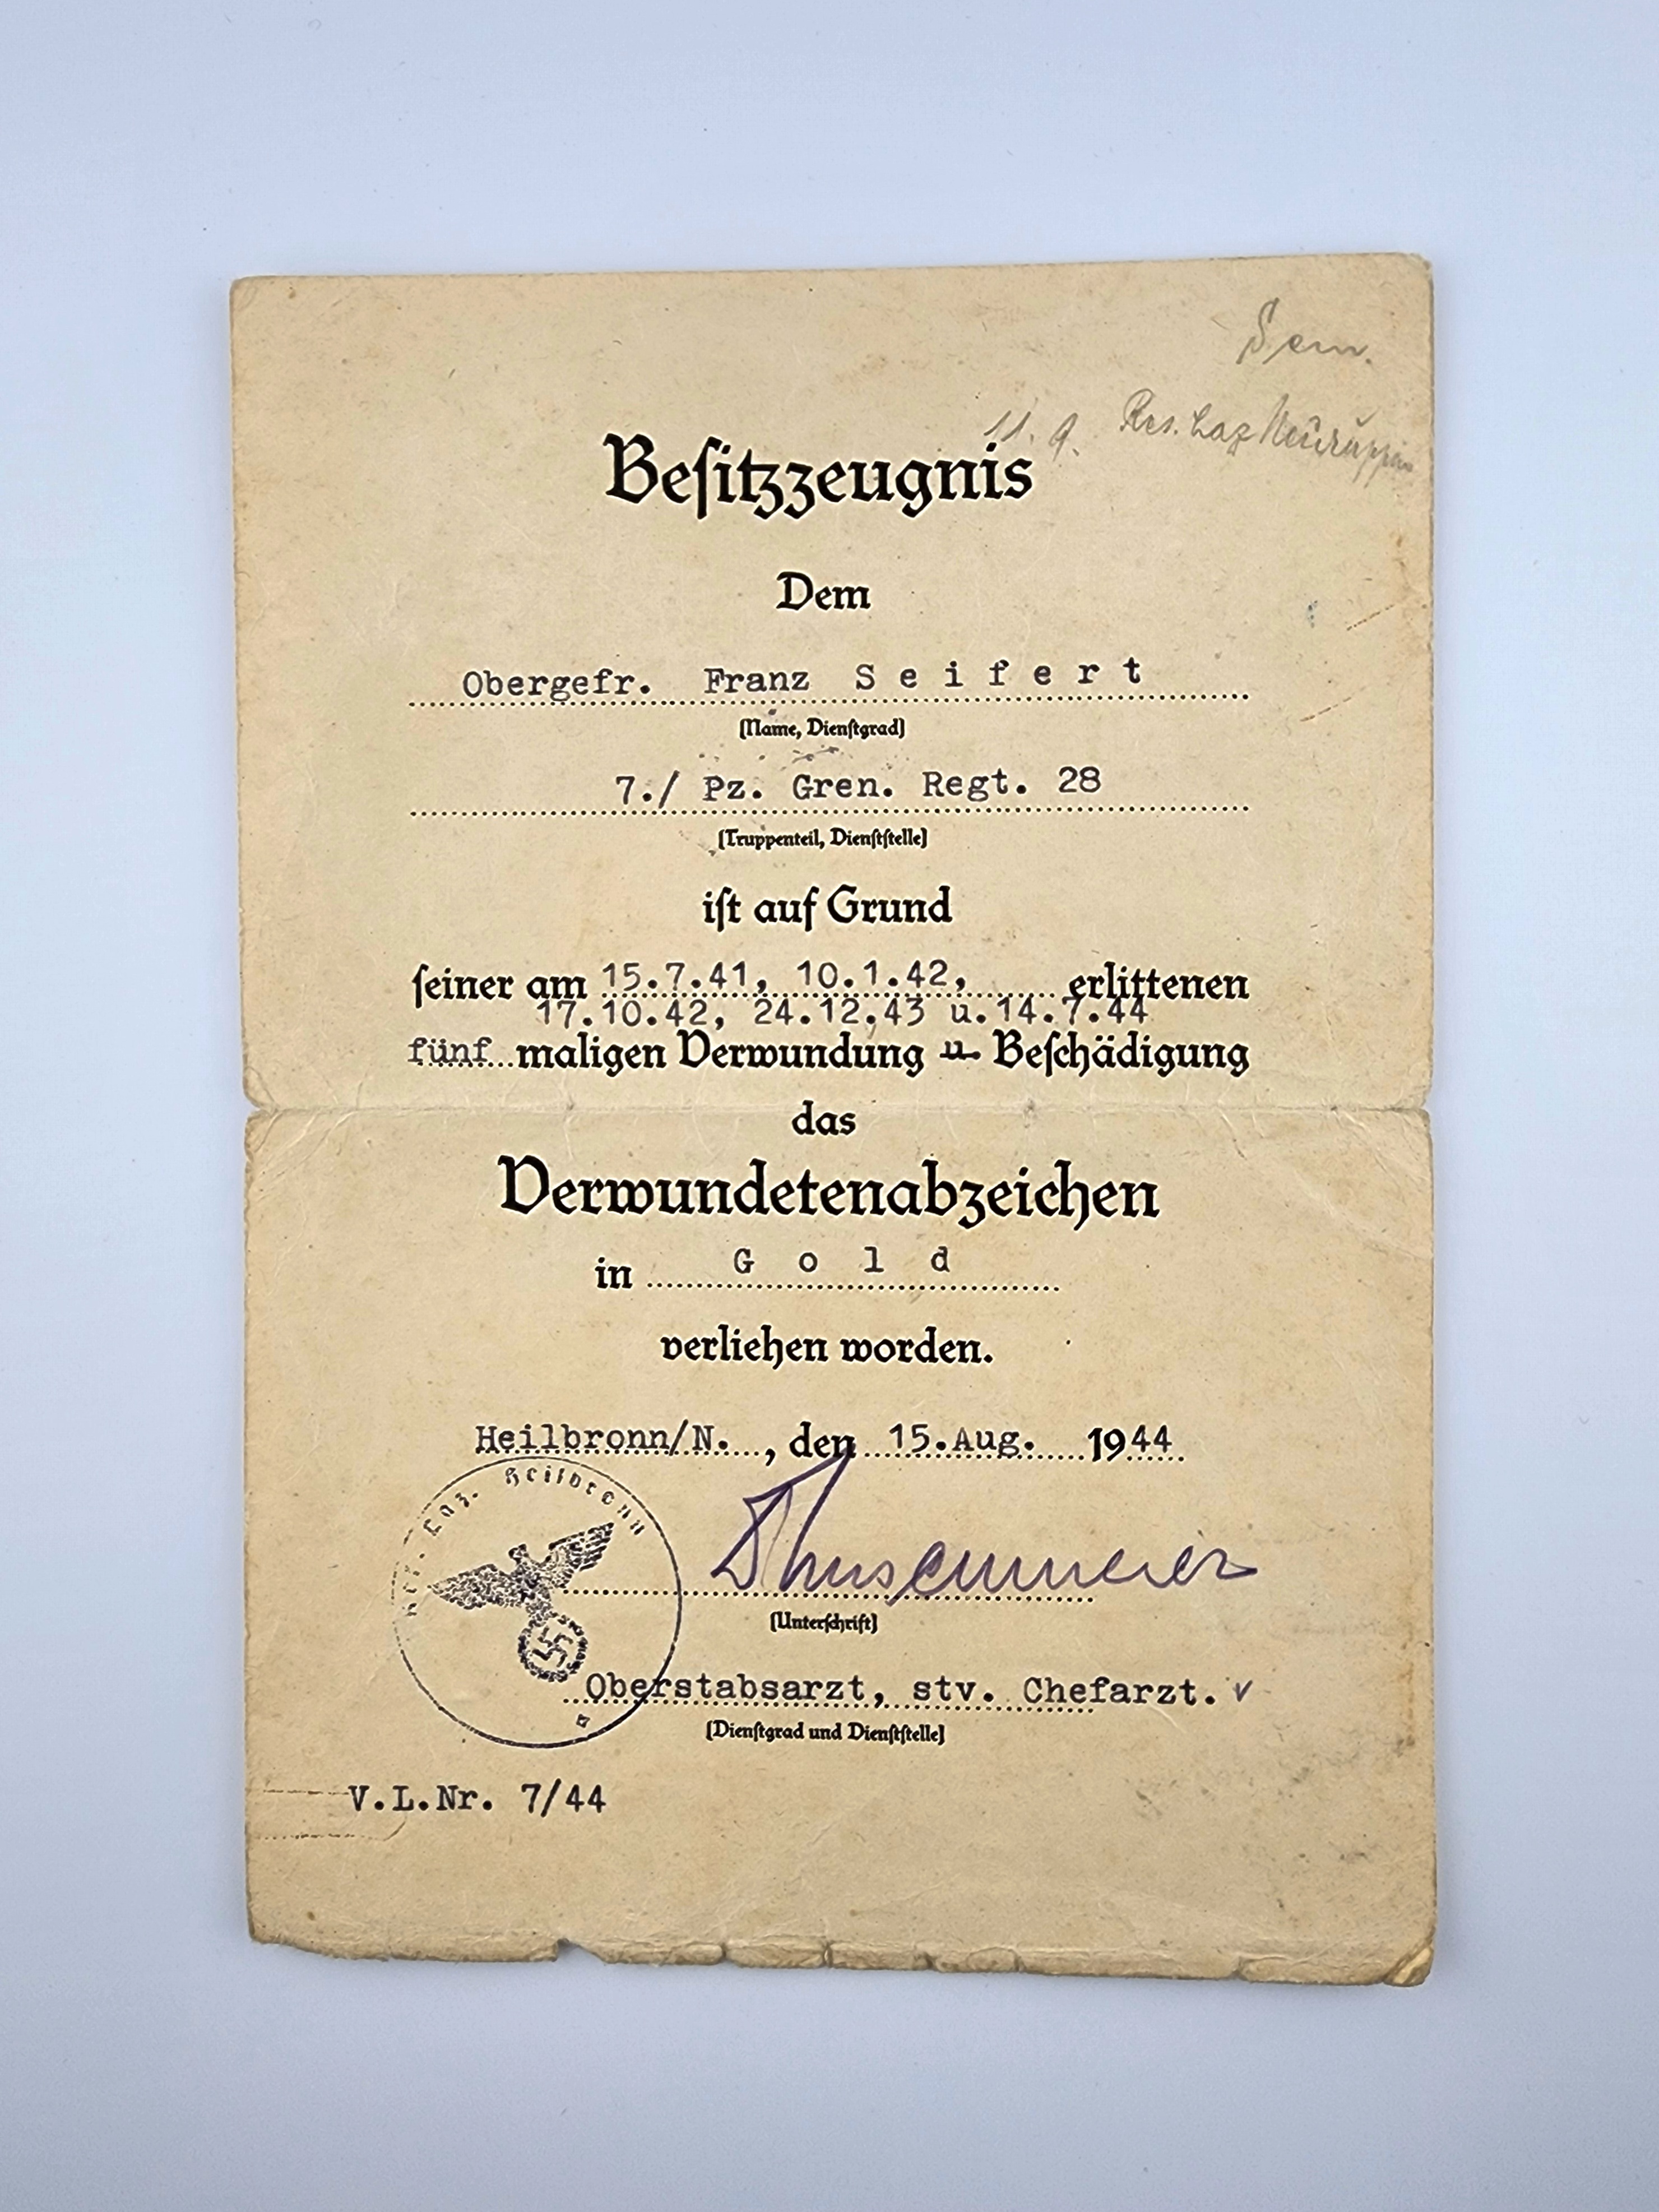 11. 9. Res. Laz Neuruppin
Besitzzeugnis
Dem
Obergefr. Franz Seifert
(Name, Dienstgrad)
7./ Pz. Gren. Regt. 28
(Truppenteil, Dienststelle)
ist auf Grund
seiner am 15.7.41, 10.1.42, erlittenen
17.10.42, 24.12.43 u.14.7.44
fünf maligen Verwundung u. Beschädigung
das
Verwundetenabzeichen
in Gold
verliehen worden.
Heilbronn/N., den 15.Aug. 1944
Res. Laz. Heilbronn
(Unterschrift)
Oberstabsarzt, stv. Chefarzt.
(Dienstgrad und Dienststelle)
V.L.Nr. 7/44